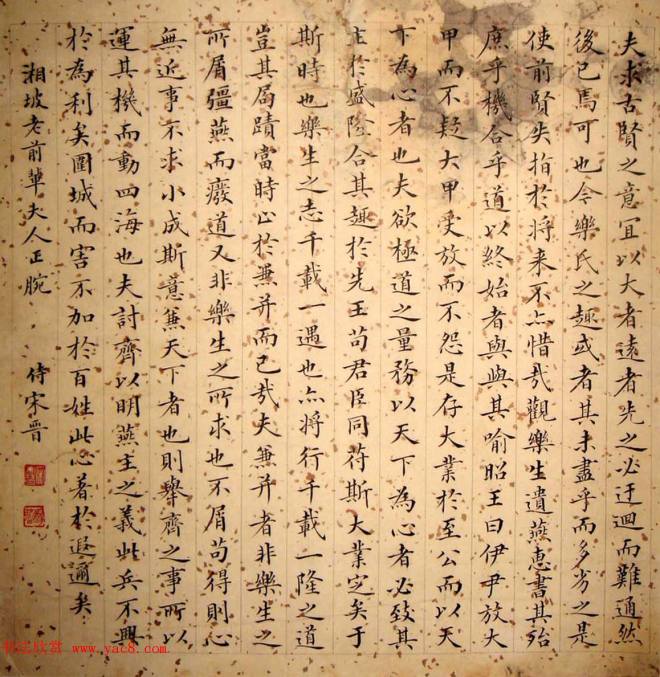 夫求古賢之意宜以大者遠者先之必迂迴而難通然
後已焉可也今樂氏之趣或者其未盡乎而多劣之是
使前賢失指於将来不亦惜哉觀樂生遺燕惠書其殆
庶乎機合乎道以終始者與與其喻昭王曰伊尹放大
甲而不疑大甲受放而不怨是存大業於至公而以天
下為心者也夫欲極道之量務以天下為心者必致其
主於盛隆合其趣於先王苟君臣同符斯大業定矣于
斯時也樂生之志千載一遇也亦将行千載一隆之道
豈其局蹟當時止於兼并而已哉夫兼并者非樂生之
所屑彊燕而廢道又非樂生之所求也不屑苟得則心
無近事不求小成斯意兼天下者也則舉齊之事所以
運其機而動四海也夫討齊以明燕主之義此兵不興
於為利矣圍城而害不加於百姓此心著於遐邇矣
湘坡老前輩夫人正腕 侍宋晋
书法欣赏 www.yac8.com